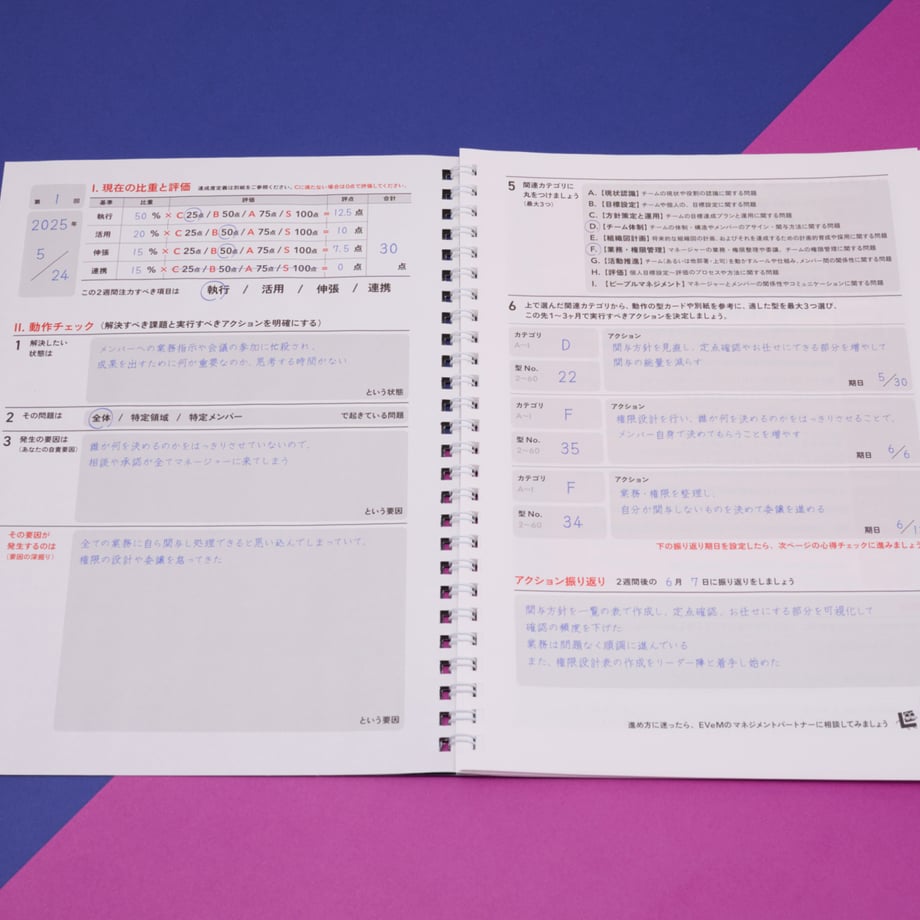 第 1 回
2025年
5/24
I. 現在の比重と評価 達成度定義は別紙をご参照ください。Cに満たない場合は0点で評価してください。
基準 比重 評価 評点 合計
執行 50 % × C 25点 / B 50点 / A 75点 / S 100点 = 12.5 点
活用 20 % × C 25点 / B 50点 / A 75点 / S 100点 = 10 点
伸張 15 % × C 25点 / B 50点 / A 75点 / S 100点 = 7.5 点
連携 15 % × C 25点 / B 50点 / A 75点 / S 100点 = 0 点
30 点
この2週間注力すべき項目は 執行 / 活用 / 伸張 / 連携
II. 動作チェック (解決すべき課題と実行すべきアクションを明確にする)
1 解決したい
状態は
メンバーへの業務指示や会議の参加に忙殺され、
成果を出すために何が重要なのか、思考する時間がない
という状態
2 その問題は 全体 / 特定領域 / 特定メンバー で起きている問題
3 発生の要因は
(あなたの自責要因)
誰が何を決めるのかをはっきりさせていないので、
相談や承認が全てマネージャーに来てしまう
という要因
その要因が
発生するのは
(要因の深掘り)
全ての業務に自ら関与し処理できると思い込んでしまっていて、
権限の設計や委譲を怠ってきた
という要因
5 関連カテゴリに
丸をつけましょう
(最大3つ)
A.【現状認識】チームの現状や役割の認識に関する問題
B.【目標設定】チームや個人の、目標設定に関する問題
C.【方針策定と運用】チームの目標達成プランと運用に関する問題
D.【チーム体制】チームの体制・構造やメンバーのアサイン・関与方法に関する問題
E.【組織図計画】将来的な組織図の計画、およびそれを達成するための計画的育成や採用に関する問題
F.【業務・権限管理】マネージャーの業務・権限整理や委譲、チームの権限管理に関する問題
G.【活動推進】チーム(あるいは他部署・上司)を動かすルールや仕組み、メンバー間の関係性に関する問題
H.【評価】個人目標設定〜評価のプロセスや方法に関する問題
I.【ピープルマネジメント】マネージャーとメンバーの関係性やコミュニケーションに関する問題
6 上で選んだ関連カテゴリから、動作の型カードや別紙を参考に、適した型を最大3つ選び、
この先1〜3ヶ月で実行すべきアクションを決定しましょう。
カテゴリ
A〜I D
型 No.
2〜60 22
アクション
関与方針を見直し、定点確認やお任せにできる部分を増やして
関与の総量を減らす
期日 5/30
カテゴリ
A〜I F
型 No.
2〜60 35
アクション
権限設計を行い、誰が何を決めるのかをはっきりさせることで、
メンバー自身で決めてもらうことを増やす
期日 6/6
カテゴリ
A〜I F
型 No.
2〜60 34
アクション
業務・権限を整理し、
自分が関与しないものを決めて委譲を進める
期日 6/1
下の振り返り期日を設定したら、次ページの心得チェックに進みましょう
アクション振り返り 2週間後の 6 月 7 日に振り返りをしましょう
関与方針を一覧の表で作成し、定点確認、お任せにする部分を可視化して
確認の頻度を下げた
業務は問題なく順調に進んでいる
また、権限設計表の作成をリーダー陣と着手し始めた
進め方に迷ったら、EVeMのマネジメントパートナーに相談してみましょう